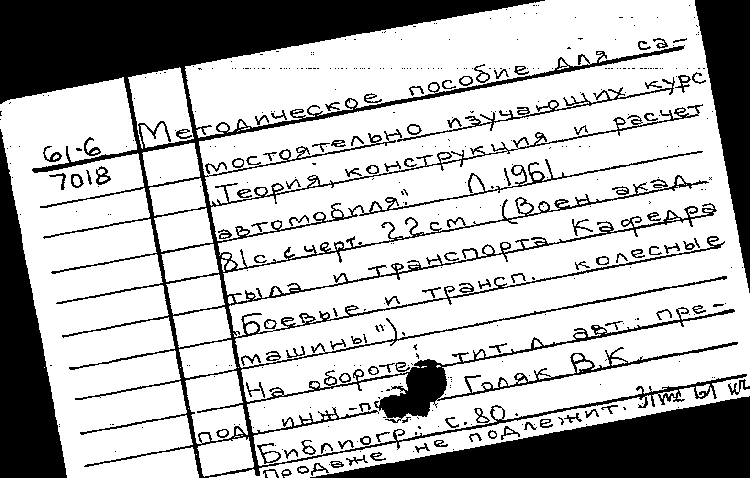 61-6
7018
Методическое пособие для са-
мостоятельно изучающих курс
„Теория, конструкция и расчет
автомобиля". Л., 1961.
81с. с черт. 22см. (Воен. акад.
тыла и транспорта. Кафедра
„Боевые и трансп. колесные
машины").
На обороте тит. л. авт.: пре-
под. инж.- Голяк В.К.
Библиогр.: с.80.
Продаже не подлежит.